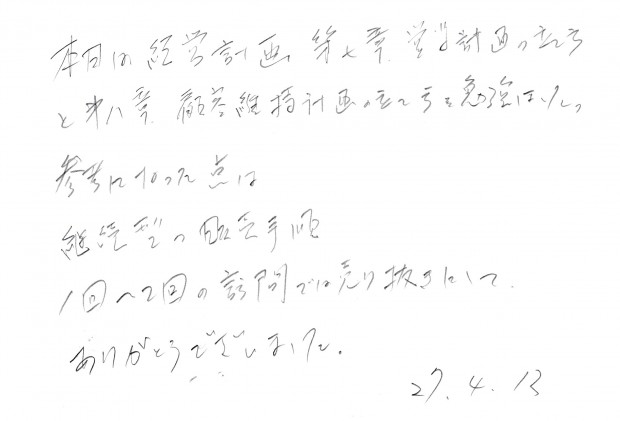 本日は経営計画 第七章 営業計画の立て方
と第八章 顧客維持計画の立て方を勉強しました。
参考になった点は
継続型の 手順
1回〜2回の訪問では売り抜きにして
ありがとうございました。
27.4.13